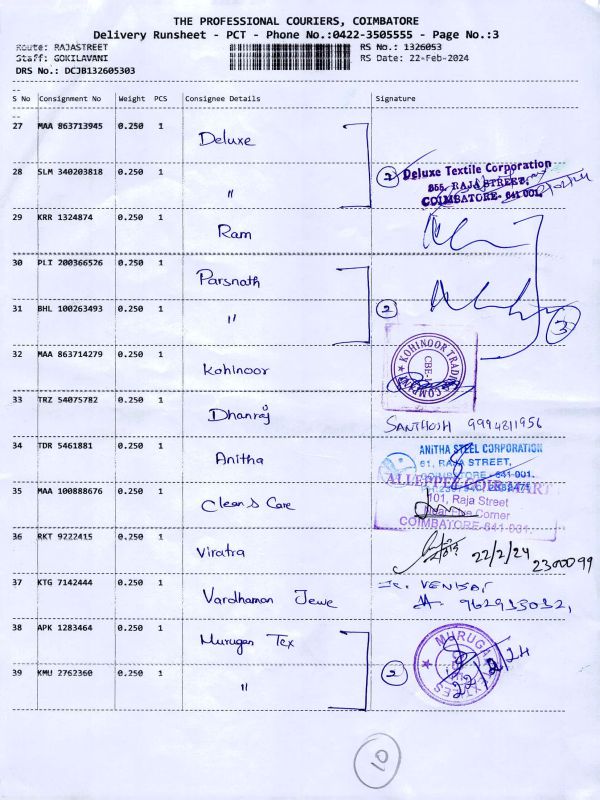 THE PROFESSIONAL COURIERS, COIMBATORE
Delivery Runsheet - PCT - Phone No.:0422-3505555 - Page No.:3
Route: RAJASTREET RS No.: 1326053
Staff: GOKILAVANI RS Date: 22-Feb-2024
DRS No.: DCJB132605303
S No Consignment No Weight PCS Consignee Details Signature
27 MAA 863713945 0.250 1 Deluxe
28 SLM 340203818 0.250 1 " 2 Deluxe Textile Corporation
855, RAJA STREET,
COIMBATORE - 641 001.
29 KRR 1324874 0.250 1 Ram
30 PLI 200366526 0.250 1 Parsnath
31 BHL 100263493 0.250 1 " 2 3
32 MAA 863714279 0.250 1 Kohinoor KOHINOOR TRADING COMPANY
33 TRZ 54075782 0.250 1 Dhanraj SANTHOSH 9994811956
34 TDR 5461881 0.250 1 Anitha ANITHA STEEL CORPORATION
61, RAJA STREET,
COIMBATORE - 641-001.
35 MAA 100888676 0.250 1 Clean & Care ALLEPPEY COIR MART
101, Raja Street
Corner
COIMBATORE-641 001.
36 RKT 9222415 0.250 1 Viratra 22/2/24 2300099
37 KTG 7142444 0.250 1 Vardhaman Jewe
38 APK 1283464 0.250 1 Murugan Tex MURUGAN
39 KMU 2762360 0.250 1 " 2 22/2/24
10